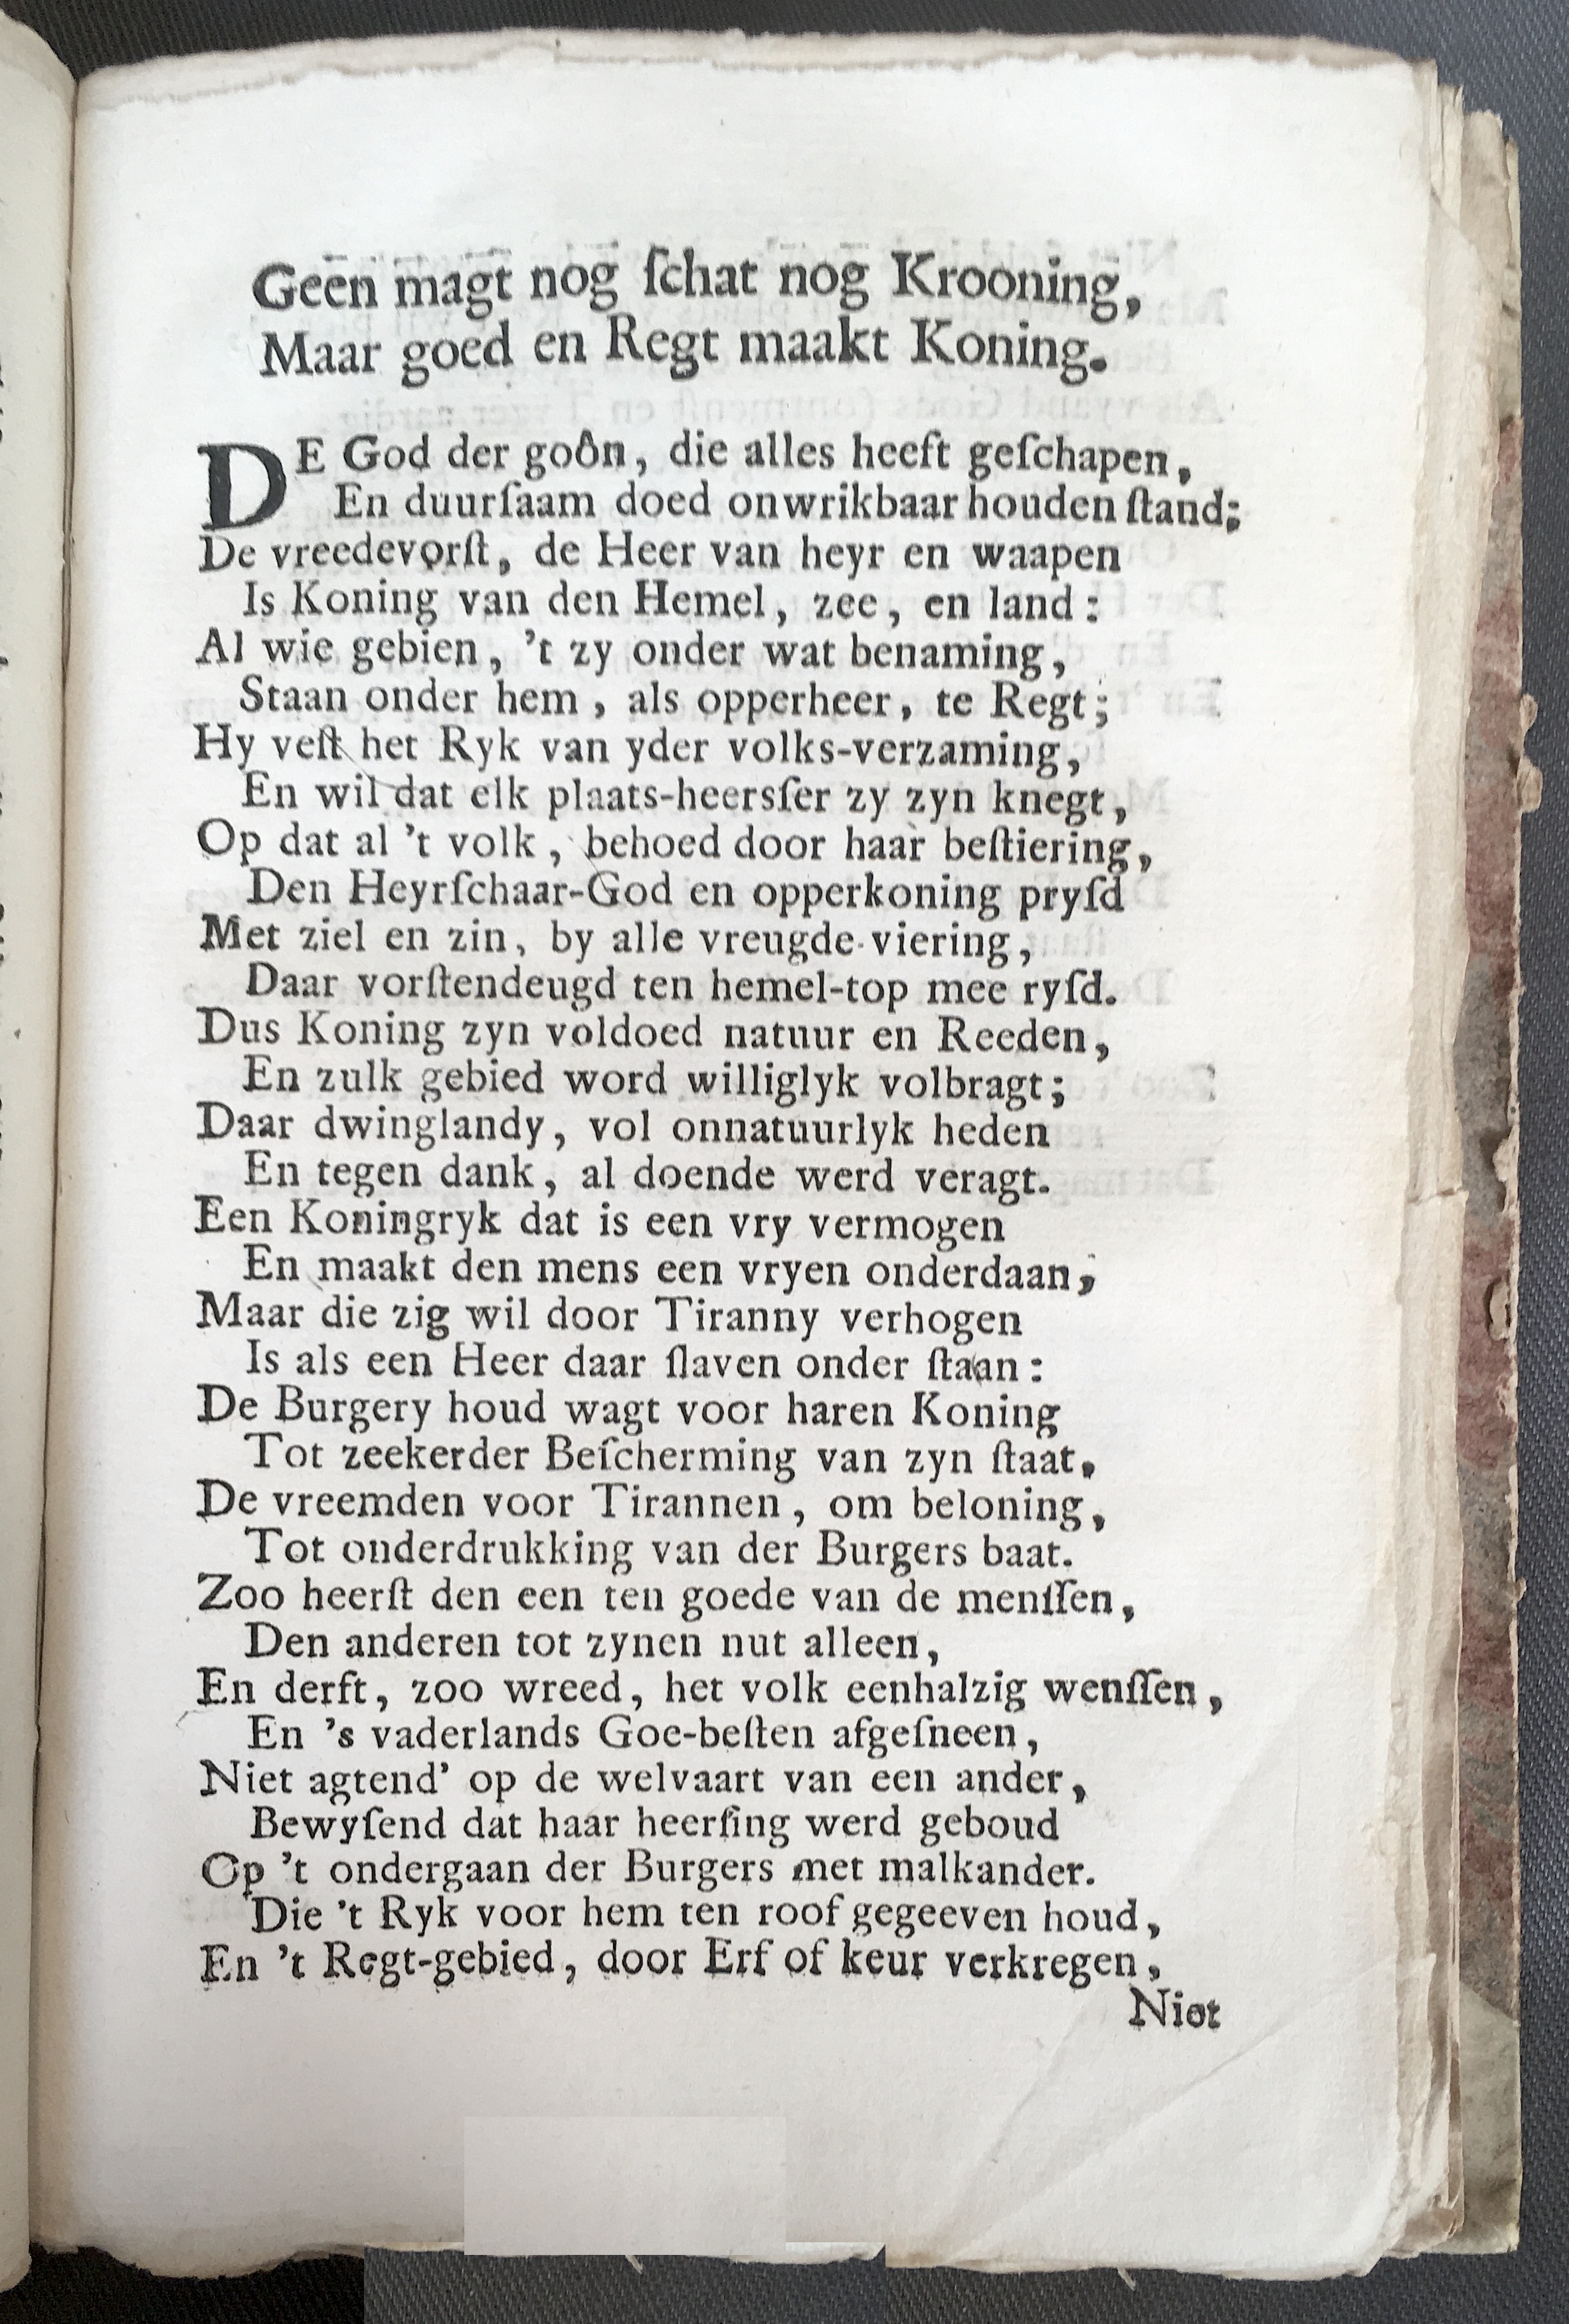 Geen magt nog ſchat nog Krooning,
Maar goed en Regt maakt Koning.
DE God der goôn, die alles heeft geſchapen,
En duurſaam doed onwrikbaar houden ſtand;
De vreedevorſt, de Heer van heyr en waapen
Is Koning van den Hemel, zee, en land:
Al wie gebien, 't zy onder wat benaming,
Staan onder hem, als opperheer, te Regt;
Hy veſt het Ryk van yder volks-verzaming,
En wil dat elk plaats-heersſer zy zyn knegt,
Op dat al 't volk, behoed door haar beſtiering,
Den Heyrſchaar-God en opperkoning pryſd
Met ziel en zin, by alle vreugde-viering,
Daar vorſtendeugd ten hemel-top mee ryſd.
Dus Koning zyn voldoed natuur en Reeden,
En zulk gebied word williglyk volbragt;
Daar dwinglandy, vol onnatuurlyk heden
En tegen dank, al doende werd veragt.
Een Koningryk dat is een vry vermogen
En maakt den mens een vryen onderdaan,
Maar die zig wil door Tiranny verhogen
Is als een Heer daar ſlaven onder ſtaan:
De Burgery houd wagt voor haren Koning
Tot zeekerder Beſcherming van zyn ſtaat,
De vreemden voor Tirannen, om beloning,
Tot onderdrukking van der Burgers baat.
Zoo heerſt den een ten goede van de menſſen,
Den anderen tot zynen nut alleen,
En derft, zoo wreed, het volk eenhalzig wenſſen,
En 's vaderlands Goe-beſten afgeſneen,
Niet agtend' op de welvaart van een ander,
Bewyſend dat haar heerſing werd geboud
Op 't ondergaan der Burgers met malkander.
Die 't Ryk voor hem ten roof gegeeven houd,
En 't Regt-gebied, door Erf of keur verkregen,
Niet